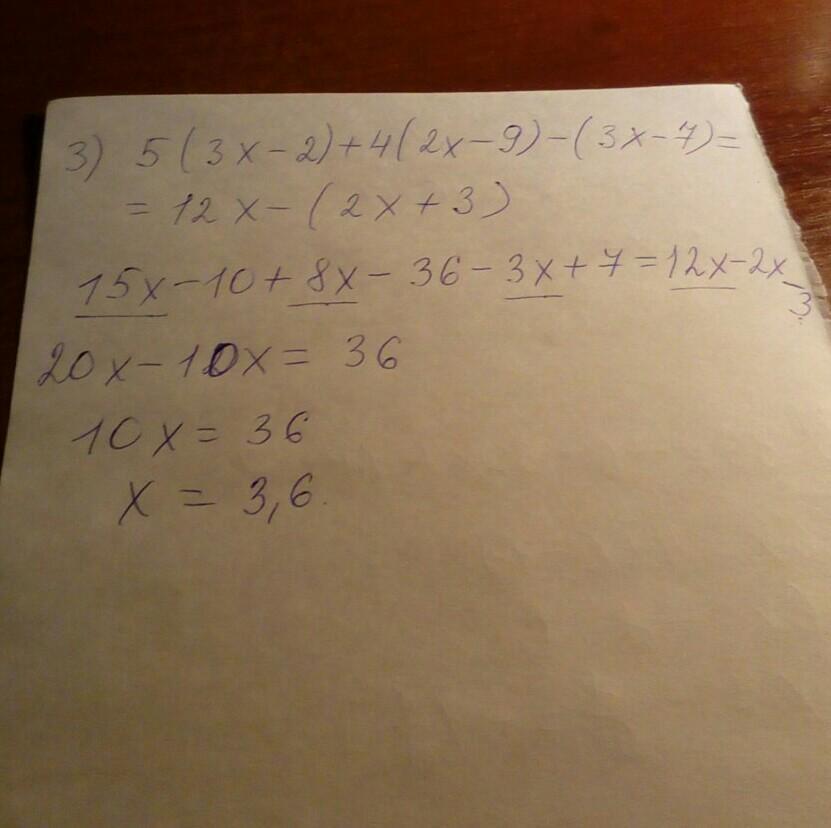 3) 5(3x-2)+4(2x-9)-(3x-7)=
=12x-(2x+3)
15x-10+8x-36-3x+7=12x-2x-3
20x-10x=36
10x=36
x=3,6.